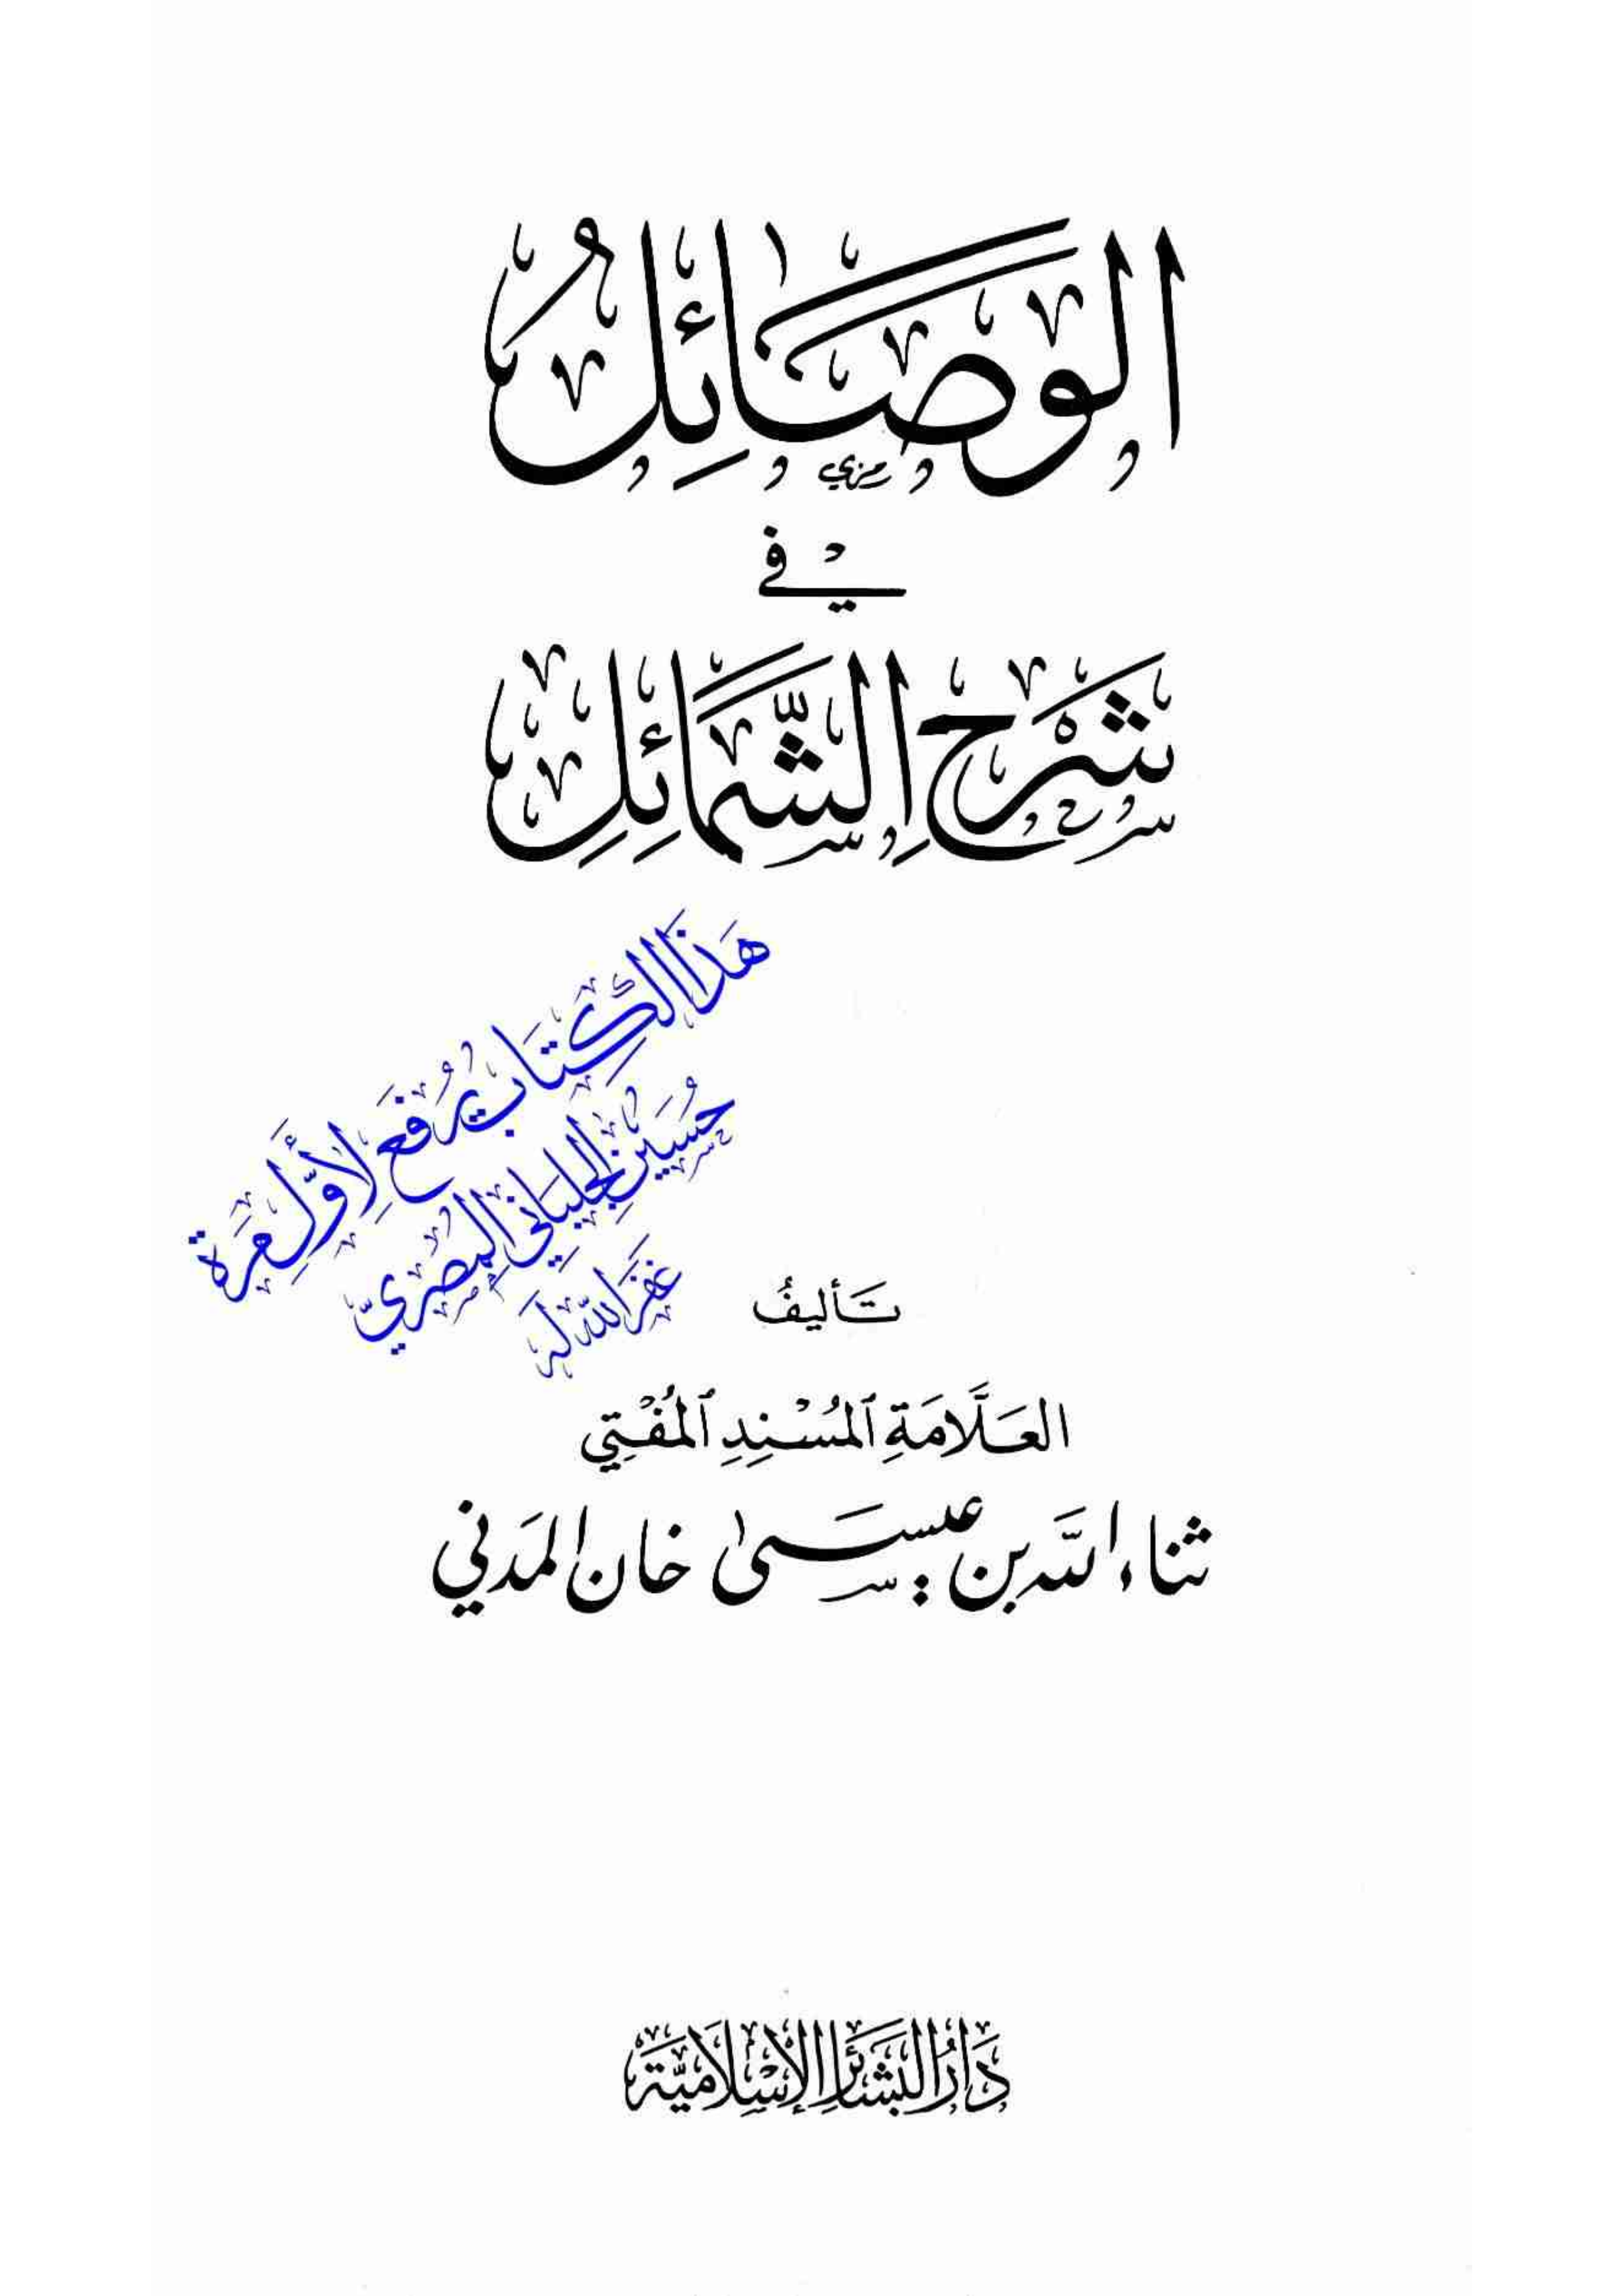 الوَصَائِلُ
في
شَرْحِ الشَّمَائِلِ
هَذَا الكِتَاب يُرْفَع لِأَوَّل مَرَة
حُسَيْن الجليَاني المِصْرِيّ
غَفَرَ اللهُ لَهُ
تَأليفُ
العَلَّامَةِ ٱلمُسْنِدِ ٱلمُفْتِي
ثناء الله بن عيسَى خان المدَني
دَارُ البَشَائِرِ الإِسْلَامِيَّة